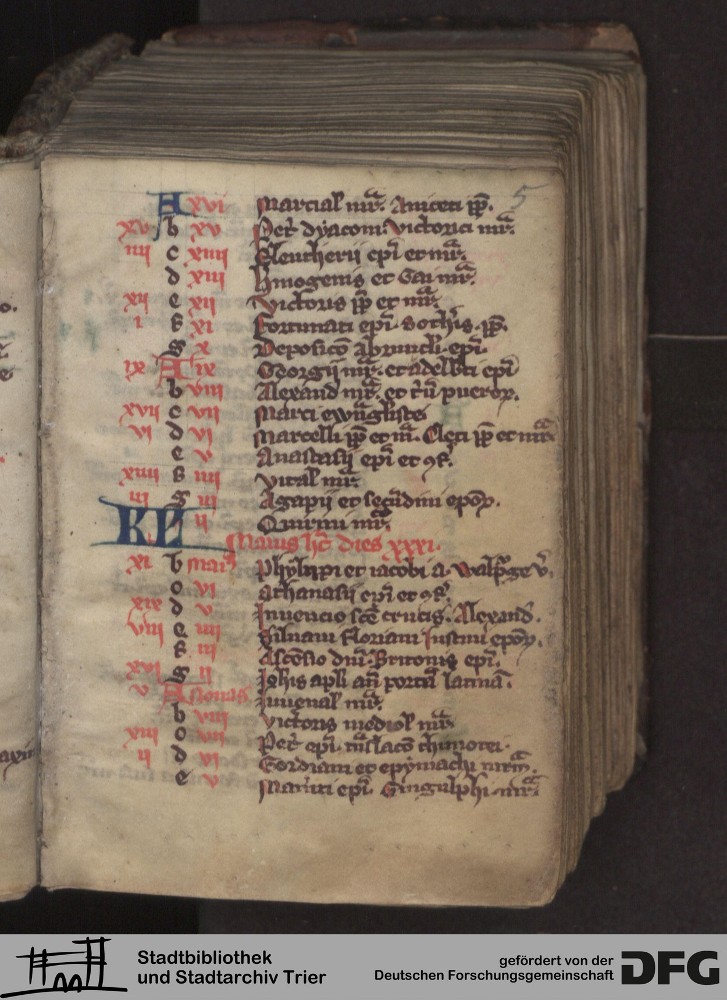 5
A xvi Marcial mr̄. Aniceti pp̄.
xv b xv Pet̄ dyaconi. Victorici mr̄.
iiii c xiiii Eleutherii epī et mr̄.
d xiii Hmogenis et Gai mr̄.
xii e xii Victoris pp̄ et mr̄.
i f xi Fortunati epī. Sothis. pp̄.
g x Deposicō Abrunculi epī.
ix A ix Georgii mr̄. et adelb̄ti epī
b viii Alexand̄ mr̄. et
xvii c vii Marci ewāgliste
vi d vi Marcelli pp̄ et mr̄. Cleti pp̄ et mr̄.
e v Anastasii epī et ꝯf.
xiiii f iiii Vital mr̄.
iii g iii Agapii et secūdini epōꝝ.
KL ii Quirini mr̄.
Maius hт dies xxxi.
xi b maii Phylippi et iacobi a. Walpurge v̄.
c vi Athanasii epī et ꝯf.
xix d v Inuencio scē crucis. Alexand̄.
viii e iiii Siluani Floriani Iustini epōꝝ.
f iii Ascēsio dnī. Britonis epī.
xvi g ii Iohis apli añ portā latinā.
v A Nonas Iuuenal mr̄.
b viii Victoris mediol mr̄.
xiii c vii Pet̄ epī. thimotei.
ii d vi Gordiani et epymachi mr̄m.
e v Mam̄ti epī. Gingulphi mr̄.
Stadtbibliothek
und Stadtarchiv Trier
gefördert von der
Deutschen Forschungsgemeinschaft
DFG